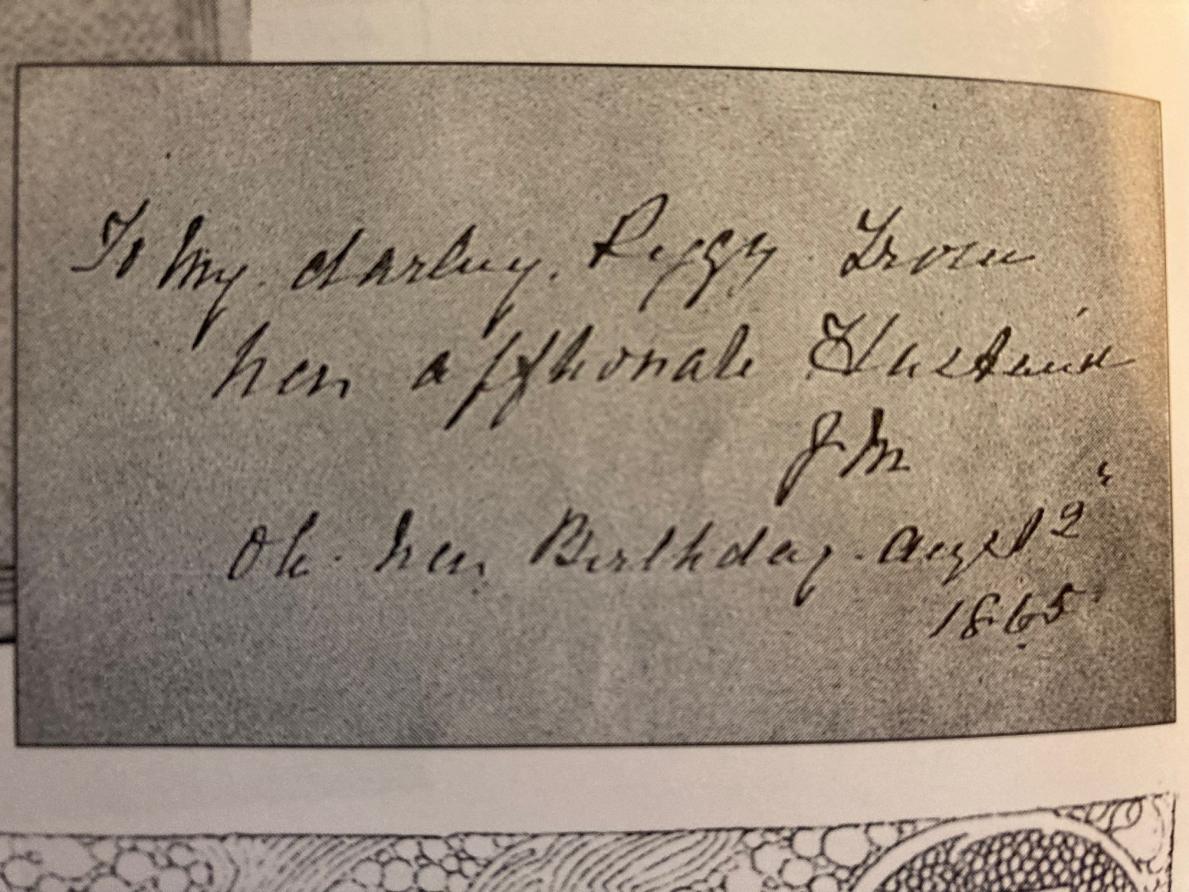 To My darling Peggy From
her afftionate Husband
J M
On her Birthday Augst 2"
1865